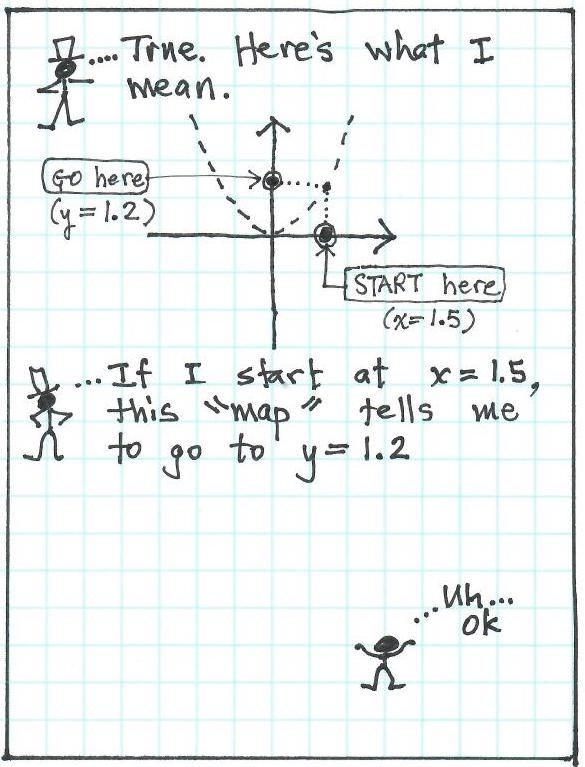 .... True. Here's what I
mean.
GO here
(y = 1.2)
START here
(x = 1.5)
... If I start at x = 1.5,
this "map" tells me
to go to y = 1.2
... Uh...
Ok